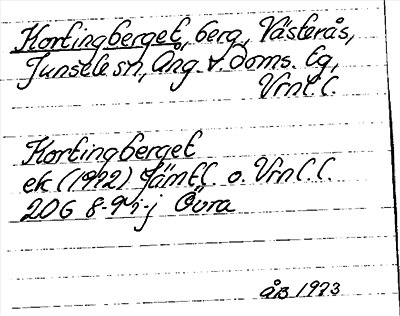 Kortingberget, berg, Västerås,
Junsele sn, Ång. v. doms. lg,
Vrnl.l.
Kortingberget
ek (1972) Jämtl. o. Vrnl.l.
20G 8-9 i-j Övra
ÅB 1973